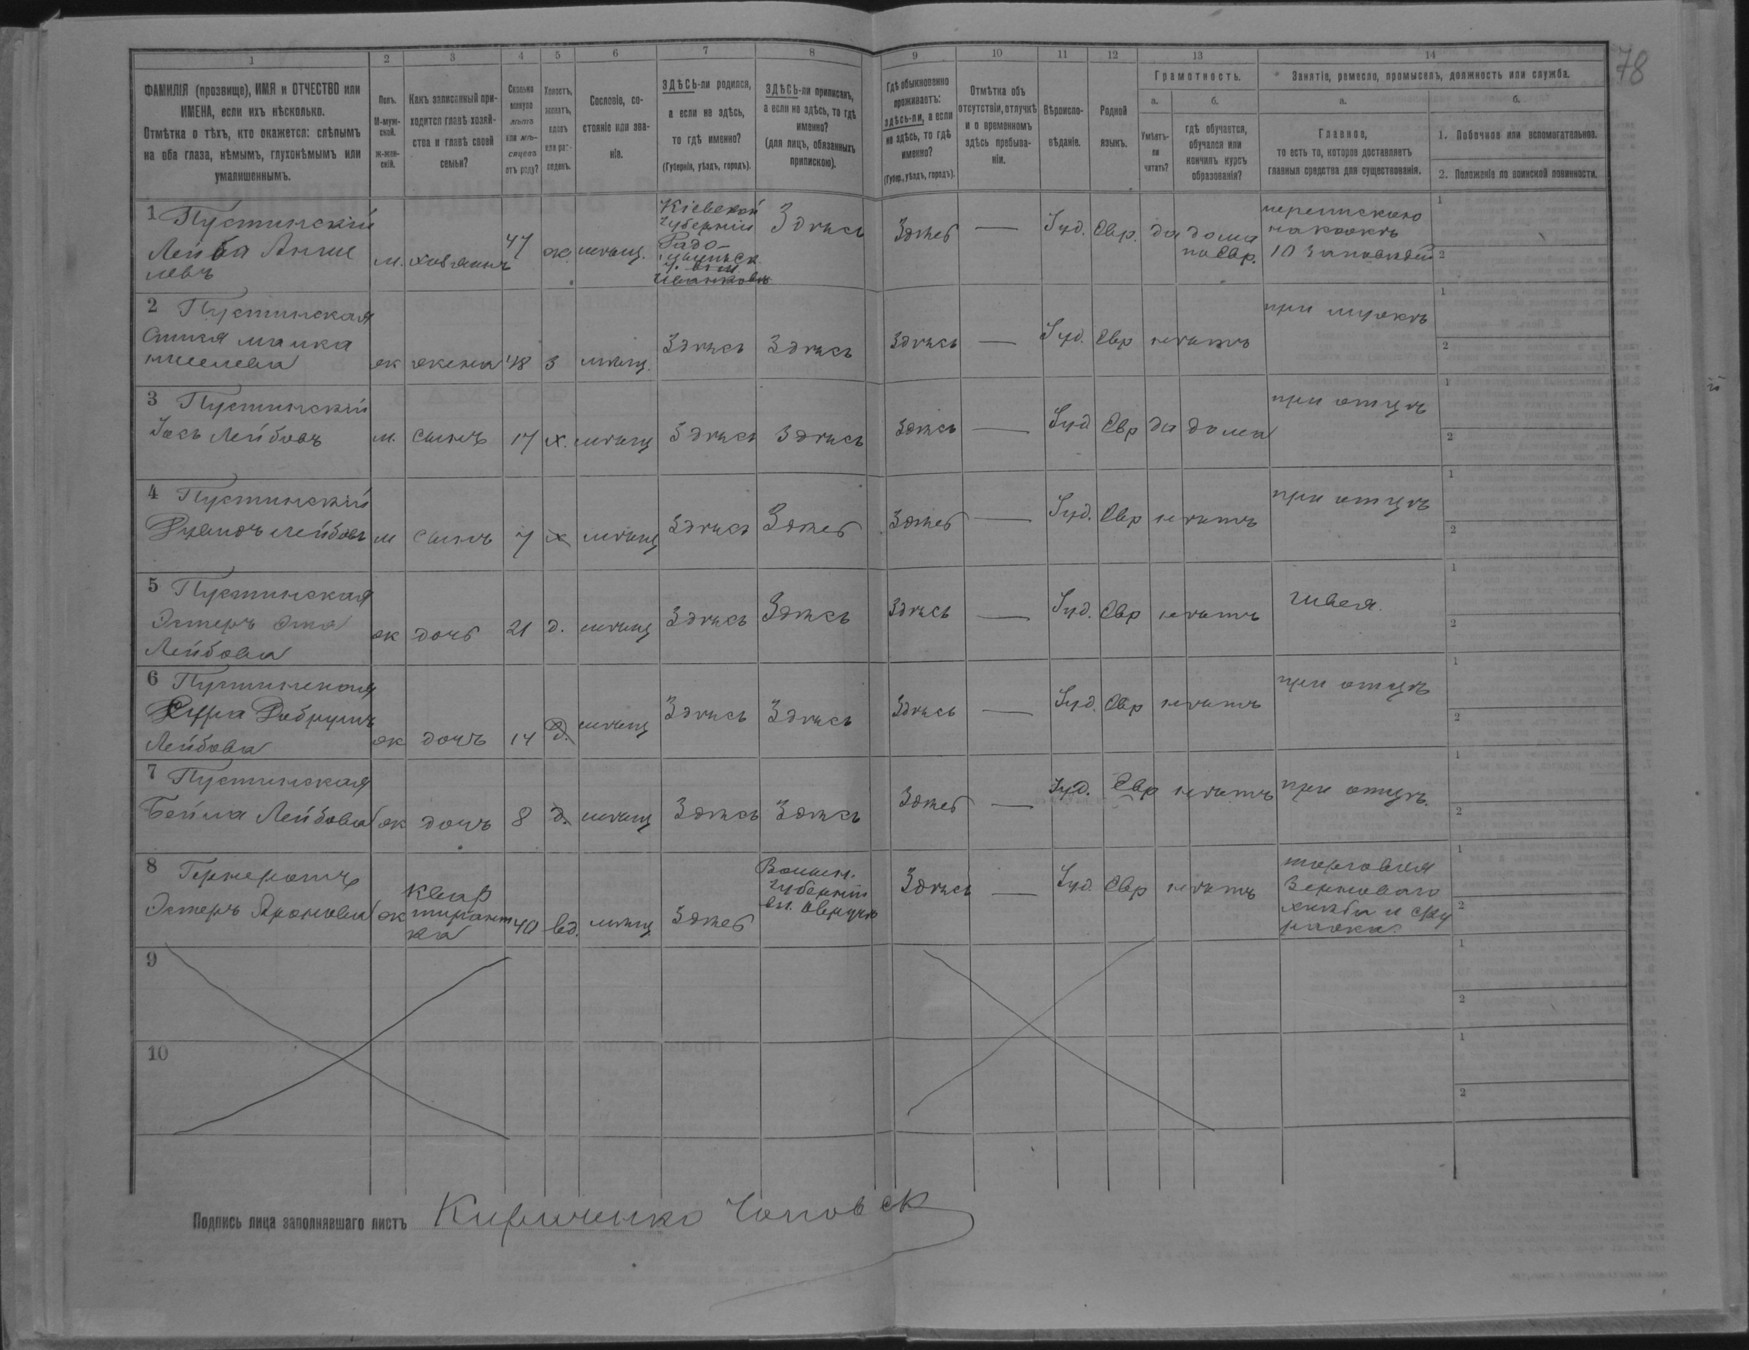 78
1 2 3 4 5 6 7 8 9 10 11 12 13 14
ФАМИЛІЯ (прозвище), ИМЯ и ОТЧЕСТВО или
ИМЕНА, если ихъ нѣсколько.
Отмѣтка о тѣхъ, кто окажется: слѣпымъ
на оба глаза, нѣмымъ, глухонѣмымъ или
умалишеннымъ.
Полъ.
М-муж-
ской.
Ж-жен-
скій.
Какъ записанный при-
ходится главѣ хозяй-
ства и главѣ своей
семьи?
Сколько
минуло
лѣтъ
или мѣ-
сяцевъ
отъ роду?
Холостъ,
женатъ,
вдовъ
или раз-
веденъ.
Сословіе, со-
стояніе или зва-
ніе.
ЗДѢСЬ-ли родился,
а если не здѣсь,
то гдѣ именно?
(Губернія, уѣздъ, городъ).
ЗДѢСЬ-ли приписанъ,
а если не здѣсь, то гдѣ
именно?
(для лицъ, обязанныхъ
припискою).
Гдѣ обыкновенно
проживаетъ:
здѣсь-ли, а если
не здѣсь, то гдѣ
именно?
(Губер., уѣздъ, городъ).
Отмѣтка объ
отсутствіи, отлучкѣ
и о временномъ
здѣсь пребыва-
ніи.
Вѣроиспо-
вѣданіе.
Родной
языкъ.
Грамотность.
а. б.
Умѣетъ-
ли
читать?
гдѣ обучается,
обучался или
кончилъ курсъ
образованія?
Занятіе, ремесло, промыселъ, должность или служба.
а. б.
Главное,
то есть то, которое доставляетъ
главныя средства для существованія.
1. Побочное или вспомогательное.
2. Положеніе по воинской повинности.
1 Пустинскій
Лейба
м. хозяинъ 47 ж. мѣщ.
Кіевской
губерніи
Радо-
Здѣсь Здѣсь — Іуд. Евр. да дома
по Евр.
10 Заповѣдей
1
2
2 Пустинская
ж жена 48 з мѣщ. Здѣсь Здѣсь Здѣсь — Іуд. Евр нѣтъ при мужѣ
1
2
3 Пустинскій
Іось Лейбовъ м. сынъ 17 х. мѣщ Здѣсь Здѣсь Здѣсь — Іуд Евр да дома при отцѣ
1
2
4 Пустинскій
Лейбовъ м сынъ 7 х мѣщ Здѣсь Здѣсь Здѣсь — Іуд. Евр нѣтъ при отцѣ
1
2
5 Пустинская
Эстеръ
Лейбова ж дочь 21 д. мѣщ Здѣсь Здѣсь Здѣсь — Іуд. Евр нѣтъ швея.
1
2
6 Пустинская
Лейбова ж дочь 14 д. мѣщ Здѣсь Здѣсь Здѣсь — Іуд. Евр нѣтъ при отцѣ
1
2
7 Пустинская
Бейла Лейбова ж дочь 8 д. мѣщ Здѣсь Здѣсь Здѣсь — Іуд. Евр нѣтъ при отцѣ.
1
2
8
Эстеръ Ароновна ж
Квар
тирант
ка
40 вд. мѣщ Здѣсь
Волын.
губерніи
Здѣсь — Іуд Евр нѣтъ
торговля
Зерноваго
хлѣба и
1
2
9
1
2
10
1
2
Подпись лица заполнявшаго листъ Кириченко